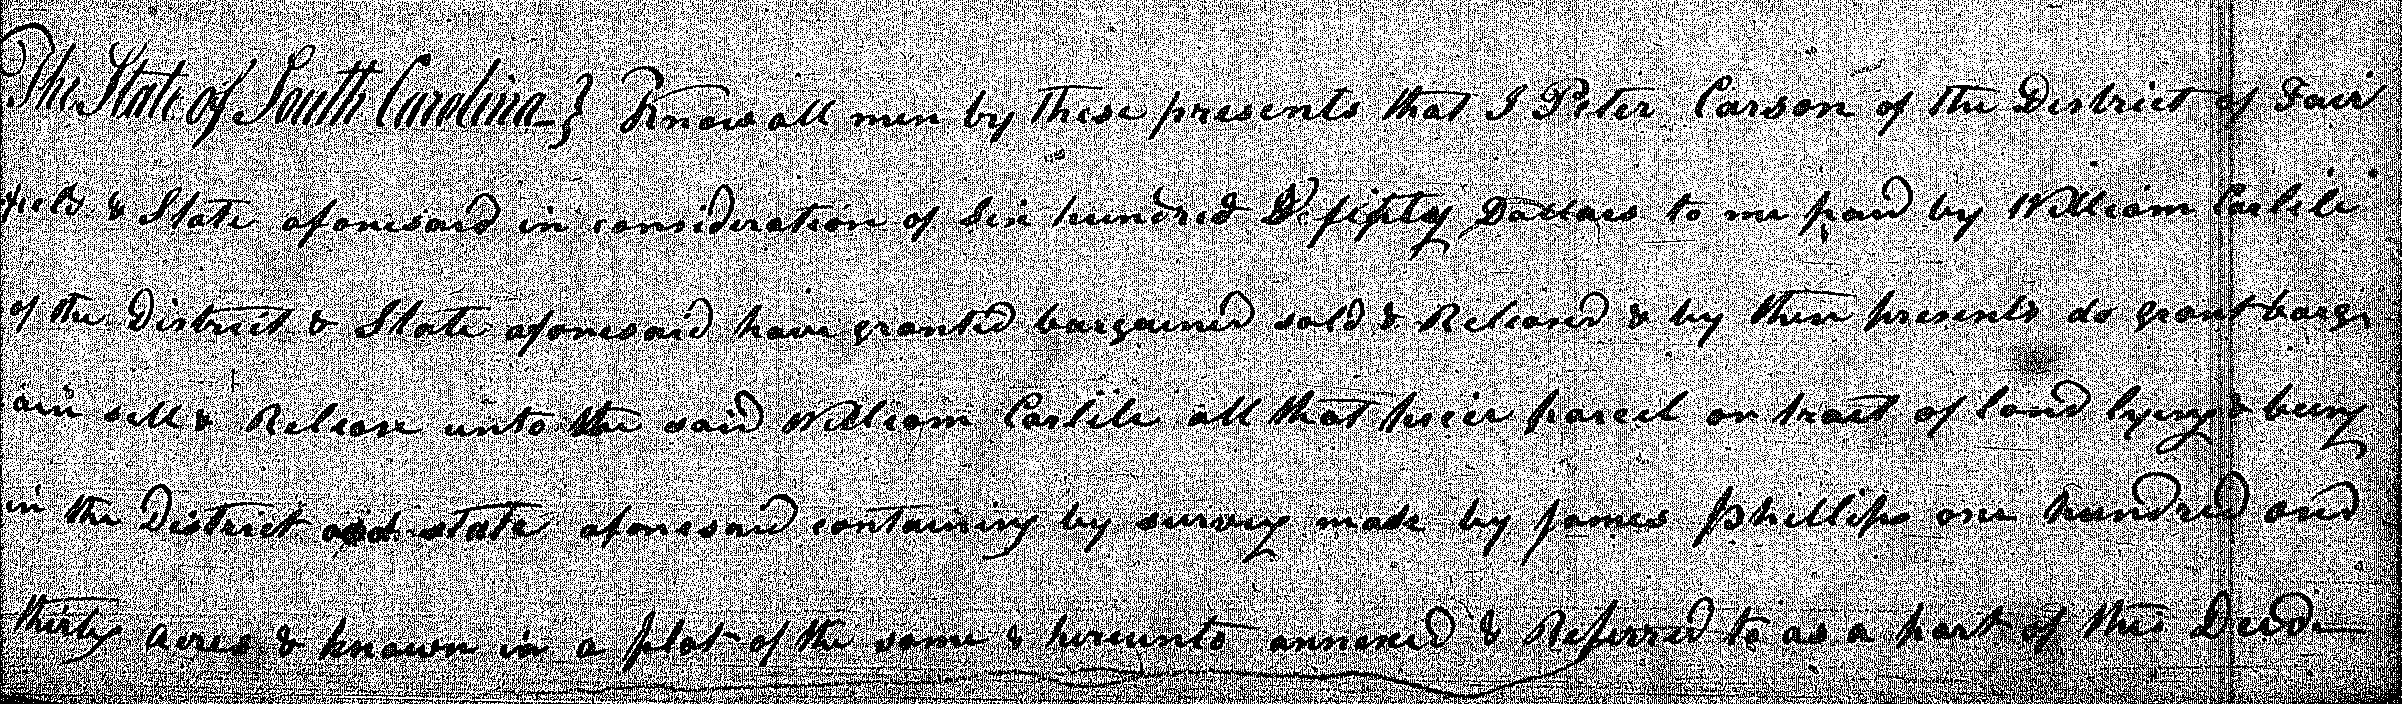 The State of South Carolina } Know all men by these presents that I Peter Carson of the District of Fair
field & State aforesaid in consideration of Six hundred & fifty Dollars to me paid by William Carlile
of the District & State aforesaid have granted bargained sold & Released & by these presents do grant barg
ain sell & Release unto the said William Carlile all that piece parcel or tract of land lying & being
in the District and state aforesaid containing by survey made by James Phillips one hundred and
thirty acres & known in a plat of the same & hereunto annexed & Referred to as a part of this Deed